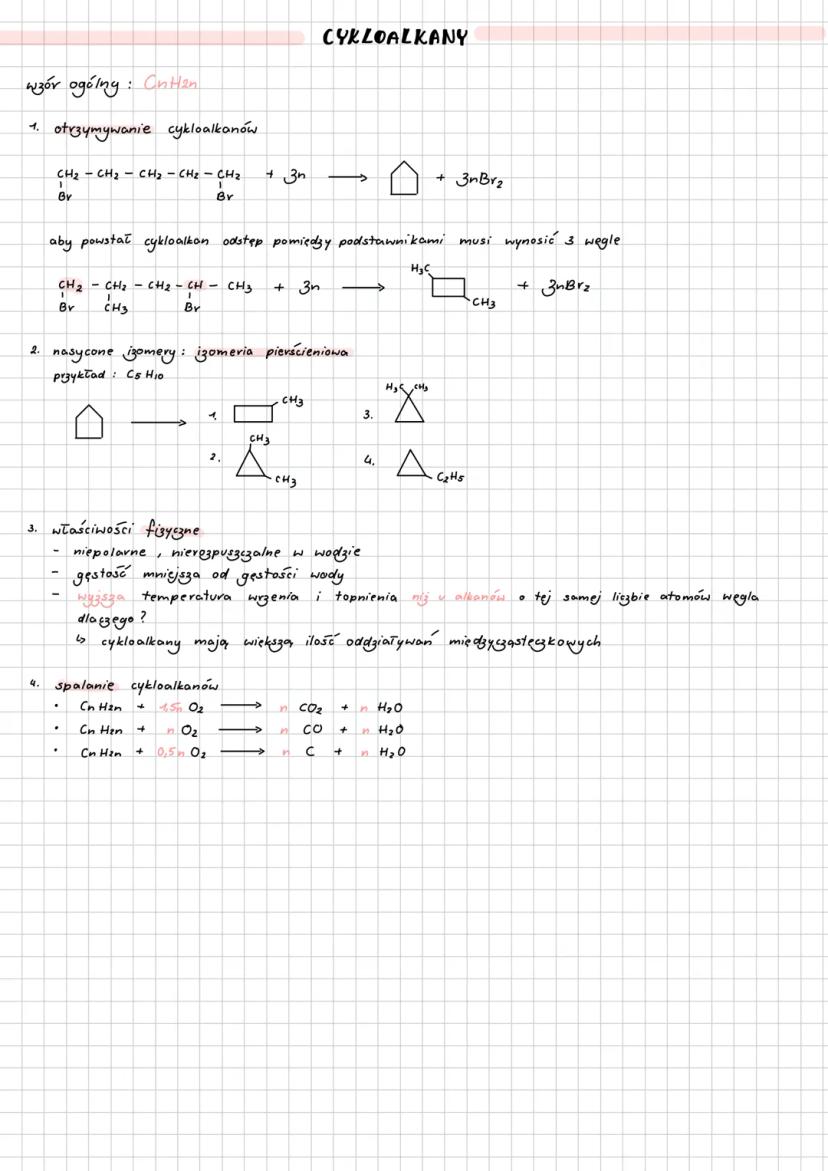 CYKLOALKANY
wzór ogólny : CnH2n
1. otrzymywanie cykloalkanów
CH2 - CH2 - CH2 - CH2 - CH2 + Zn → + ZnBr2
Br Br
aby powstał cykloalkan odstęp pomiędzy podstawnikami musi wynosić 3 węgle
H3C
CH2 - CH2 - CH2 - CH - CH3 + Zn → + ZnBr2
Br CH3 Br CH3
2. nasycone izomery : izomeria pierścieniowa
przykład : C5H10
H3C CH3
→ 1. CH3 3.
CH3
2. 4.
CH3 C2H5
3. właściwości fizyczne
- niepolarne , nierozpuszczalne w wodzie
- gęstość mniejsza od gęstości wody
- wyższa temperatura wrzenia i topnienia niż u alkanów o tej samej liczbie atomów węgla
dlaczego ?
↳ cykloalkany mają większą ilość oddziaływań międzycząsteczkowych
4. spalanie cykloalkanów
• CnH2n + 1,5n O2 → n CO2 + n H2O
• CnH2n + n O2 → n CO + n H2O
• CnH2n + 0,5n O2 → n C + n H2O